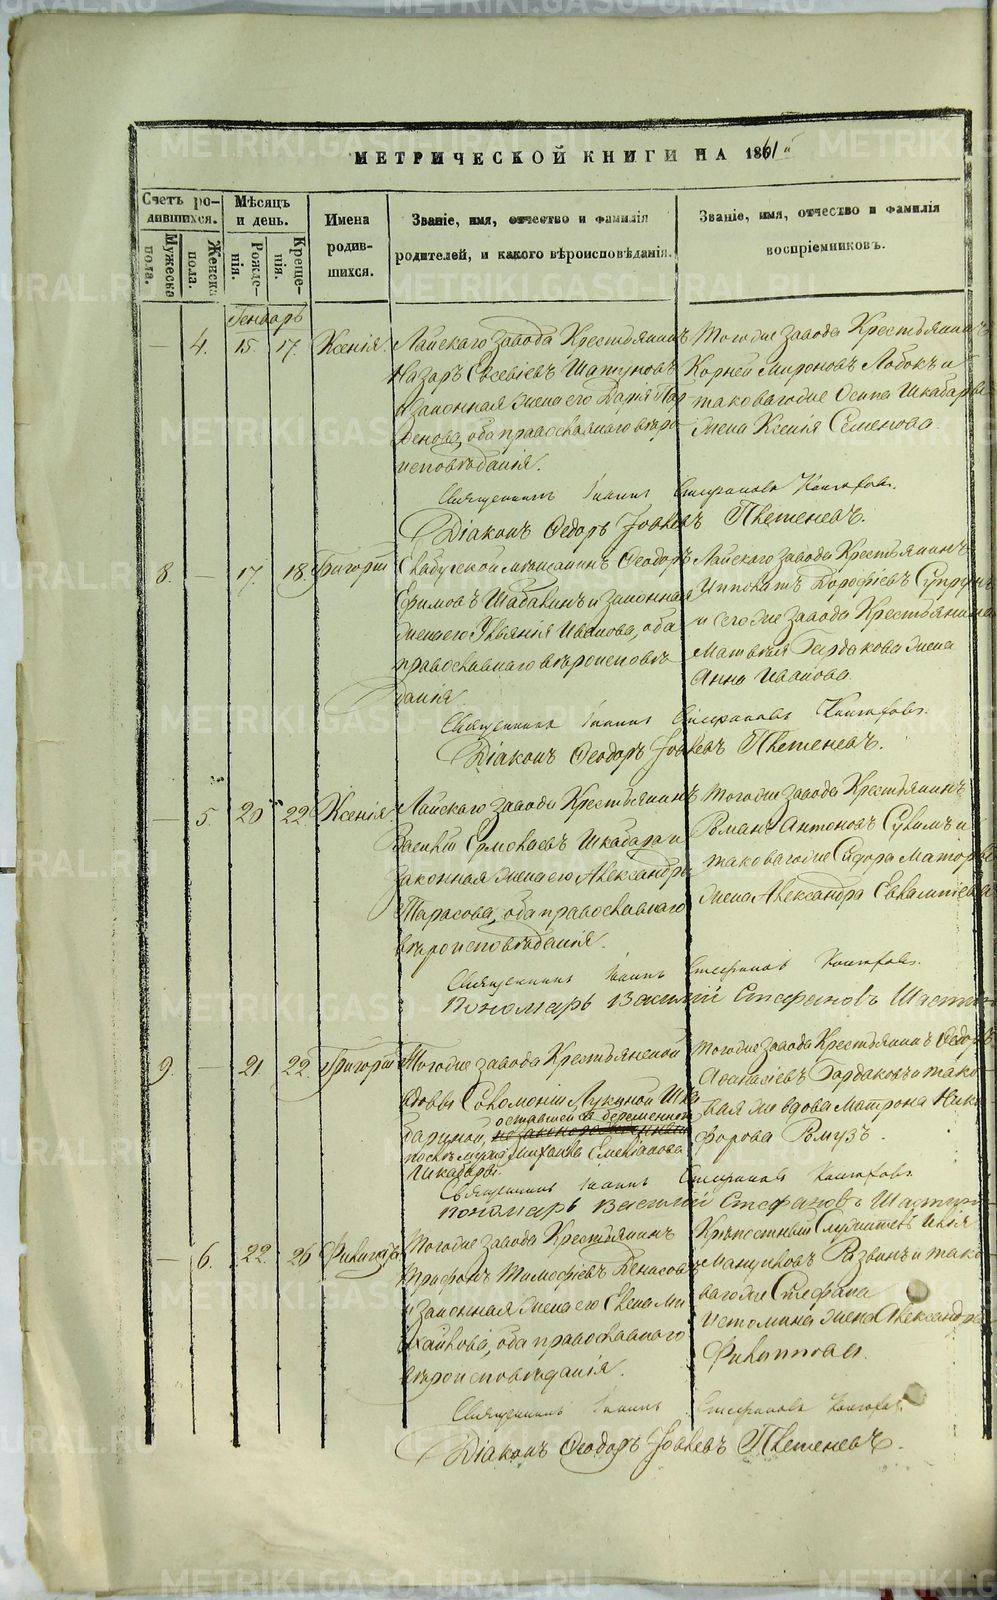 МЕТРИЧЕСКОЙ КНИГИ НА 1861
Счетъ родившихся.
Мужеска пола.
Женска пола.
Мѣсяцъ и день.
Рожденія.
Крещенія.
Имена родившихся.
Званіе, имя, отчество и фамилія
родителей, и какого вѣроисповѣданія.
Званіе, имя, отчество и фамилія
воспріемниковъ.
Генварь
— 4. 15. 17. Ксенія.
Лайскаго завода Крестьянинъ
Назаръ Евсевіевъ Шатуновъ
и законная жена его Дарія Пар-
фенова, оба православнаго вѣро
исповѣданія.
Тогоже завода Крестьянинъ
Корней Мироновъ Лобокъ и
таковагоже Осипа Шкабары
жена Ксенія Семенова.
Священникъ Іоаннъ Стефановъ
Діаконъ Ѳеодоръ Іовлевъ Плетеневъ.
8. — 17. 18. Григорій
мѣщанинъ Ѳеодоръ
Ефимовъ Шабалинъ и законная
жена его Уліянія Иванова, оба
православнаго вѣроисповѣ
данія.
Лайскаго завода Крестьянинъ
Ипполитъ
и тогоже завода Крестьянина
Матвѣя Бардакова жена
Анна Иванова.
Священникъ Іоаннъ Стефановъ
Діаконъ Ѳеодоръ Іовлевъ Плетеневъ.
— 5. 20. 22. Ксенія
Лайскаго завода Крестьянинъ
Василій Ермолаевъ Шкабара и
законная жена его Александра
Тарасова, оба православнаго
вѣроисповѣданія.
Тогоже завода Крестьянинъ
Романъ Антоновъ и
таковагоже Сидора
жена Александра Евлампіева
Священникъ Іоаннъ Стефановъ
Пономарь Василій Стефановъ
9. — 21. 22. Григорій
Тогоже завода Крестьянской
вдовы Соломоніи Лукиной Шка
бариной,
оставшей въ беременной
послѣ мужа Михаила Емельянова
Шкабары.
Тогоже завода Крестьянинъ Ѳедоръ
Аѳанасіевъ Бардаковъ и тако
вая же вдова Матрона Ники
форова Ромузъ.
Священникъ Іоаннъ Стефановъ
Пономарь Василій Стефановъ
— 6. 22. 26.
Тогоже завода Крестьянинъ
Трифонъ Тимофіевъ Денисовъ
и законная жена его Елена Ми
хайлова, оба православнаго
вѣроисповѣданія.
Крѣпостный Служитель Илія
Мануиловъ и тако
вагоже Стефана
Истомина жена Александра
Филиппова.
Священникъ Іоаннъ Стефановъ
Діаконъ Ѳеодоръ Іовлевъ Плетеневъ.
METRIKI.GASO-URAL.RU